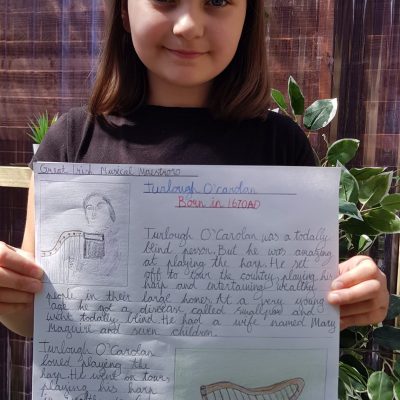 Great Irish Musical Maestroso
Turlough O'carolan
Born in 1670AD
Turlough O'Carolan was a totally
blind person. But he was amazing
at playing the harp. He set
off to tour the country, playing his
harp and entertaining wealthy
people in their large homes. At a very young
age he got a disease called smallpox and
went totally blind. He had a wife named Mary
Maguire and seven children.
Turlough O'Carolan
loved playing the
harp. He went on tour
playing his harp